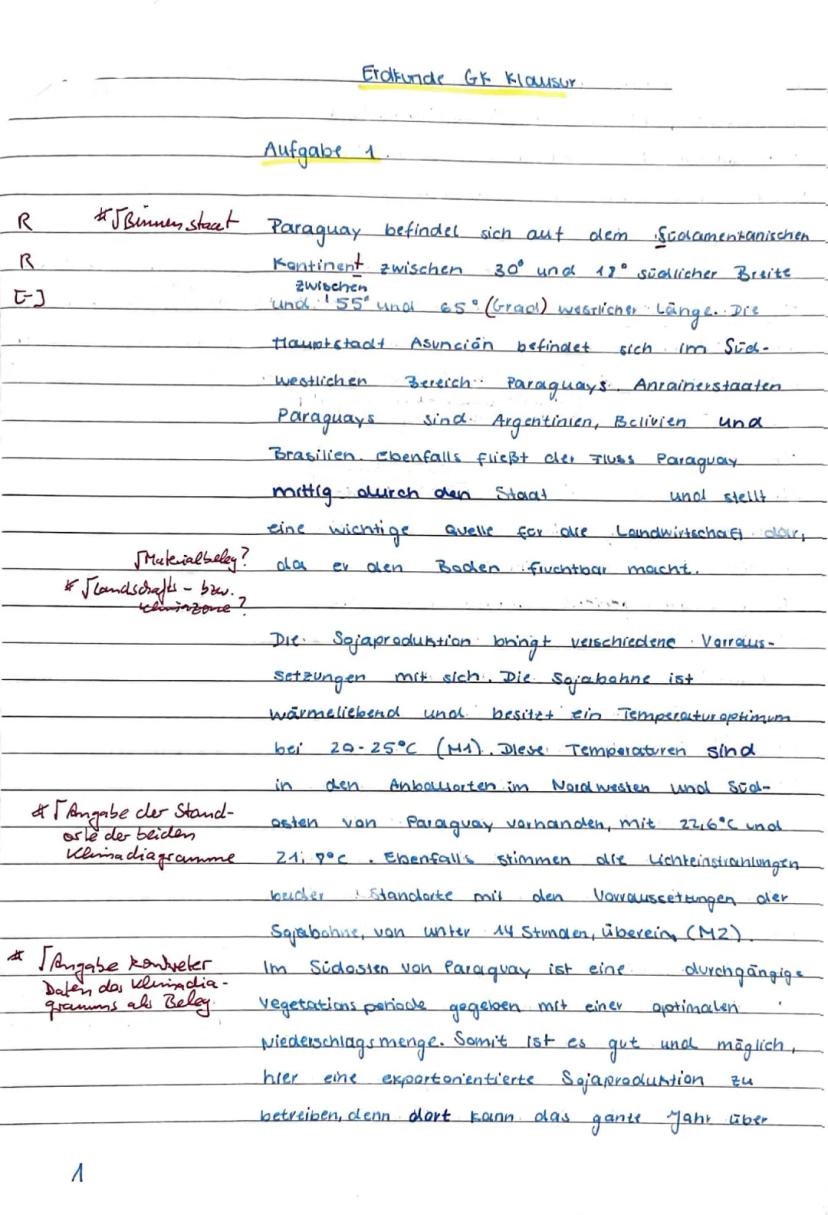 Erdkunde GK Klausur
Aufgabe 1.
R *√Binnenstaat Paraguay befindet sich auf dem Südamerikanischen
R Kontinent zwischen 30° und 18° südlicher Breite
[-] zwischen
und 55° und 65° (Grad) westlicher Länge. Die
Hauptstadt Asunción befindet sich im Süd-
westlichen Bereich Paraguays. Anrainerstaaten
Paraguays sind Argentinien, Bolivien und
Brasilien. Ebenfalls fließt der Fluss Paraguay
mittig durch den Staat und stellt
eine wichtige Quelle für die Landwirtschaft dar,
√Materialbeleg? da er den Boden fruchtbar macht.
* √Landschafts- bzw.
Klimazone?
Die Sojaproduktion bringt verschiedene Vorraus-
setzungen mit sich. Die Sojabohne ist
wärmeliebend und besitzt ein Temperaturoptimum
bei 20-25°C (M1). Diese Temperaturen sind
in den Anbauorten im Nordwesten und Süd-
* √Angabe der Stand- osten von Paraguay vorhanden, mit 22,6°C und
orte der beiden
Klimadiagramme 21, 9°C. Ebenfalls stimmen die Lichteinstrahlungen
beider Standorte mit den Vorraussetzungen der
Sojabohne, von unter 14 Stunden, überein (M2).
* √Angabe konkreter Im Südosten von Paraguay ist eine durchgängige
Daten des Klimadia-
gramms als Beleg. Vegetationsperiode gegeben mit einer optimalen
Niederschlagsmenge. Somit ist es gut und möglich,
hier eine exportorientierte Sojaproduktion zu
betreiben, denn dort kann das ganze Jahr über
1